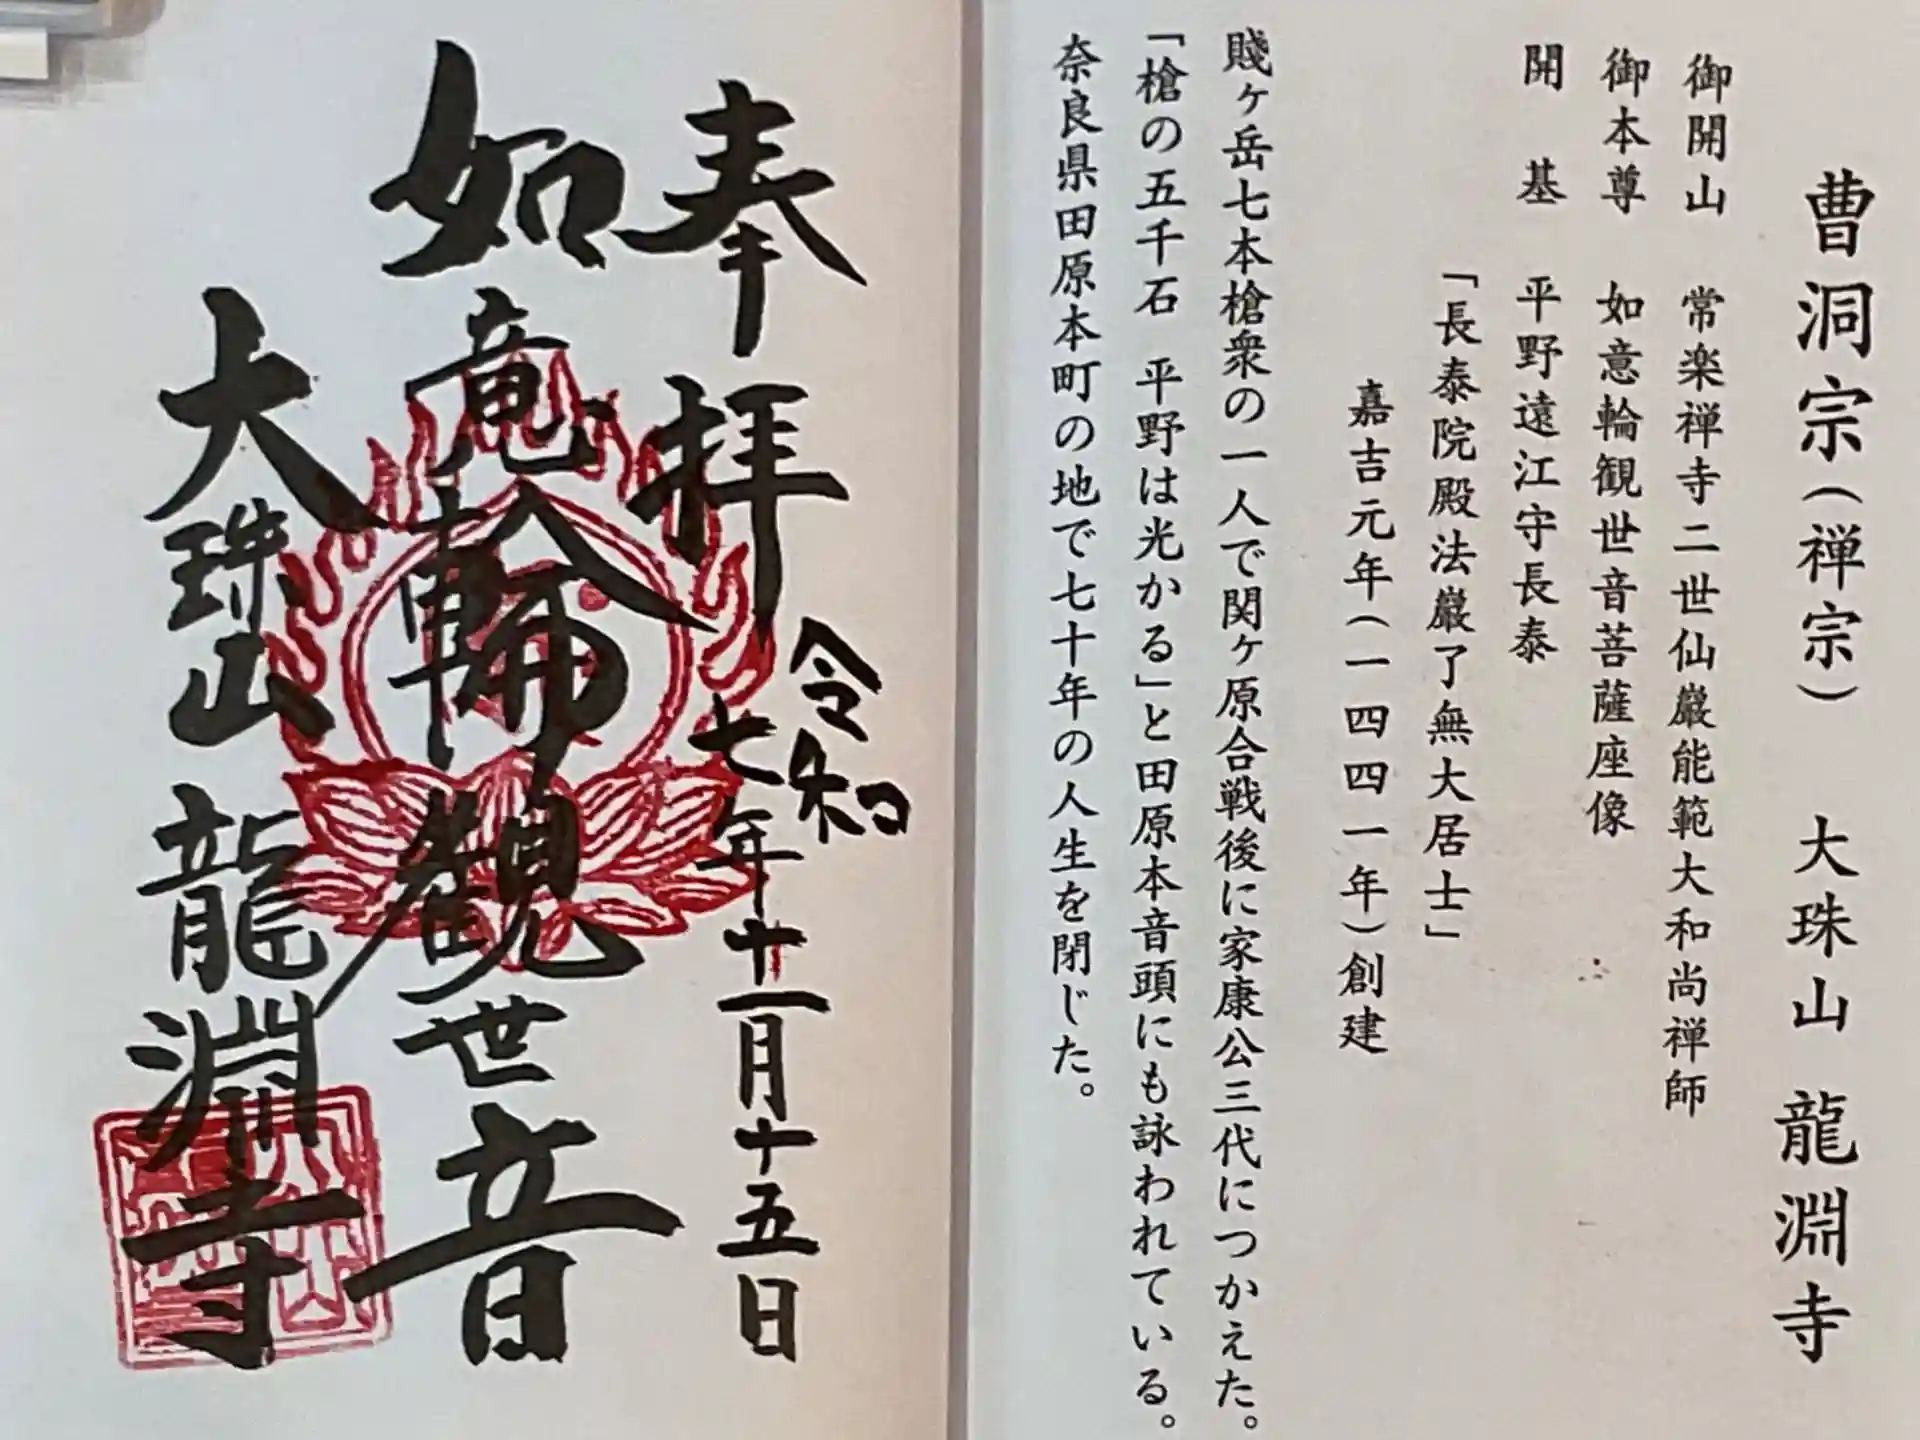 曹洞宗（禅宗）　大珠山 龍淵寺
御開山　常楽禅寺二世仙巌能範大和尚禅師
御本尊　如意輪観世音菩薩座像
開　基　平野遠江守長泰
「長泰院殿法巌了無大居士」
嘉吉元年（一四四一年）創建
賤ヶ岳七本槍衆の一人で関ヶ原合戦後に家康公三代につかえた。
「槍の五千石　平野は光かる」と田原本音頭にも詠われている。
奈良県田原本町の地で七十年の人生を閉じた。
奉拝
令和
七年十一月十五日
如意輪観世音
大珠山 龍淵寺